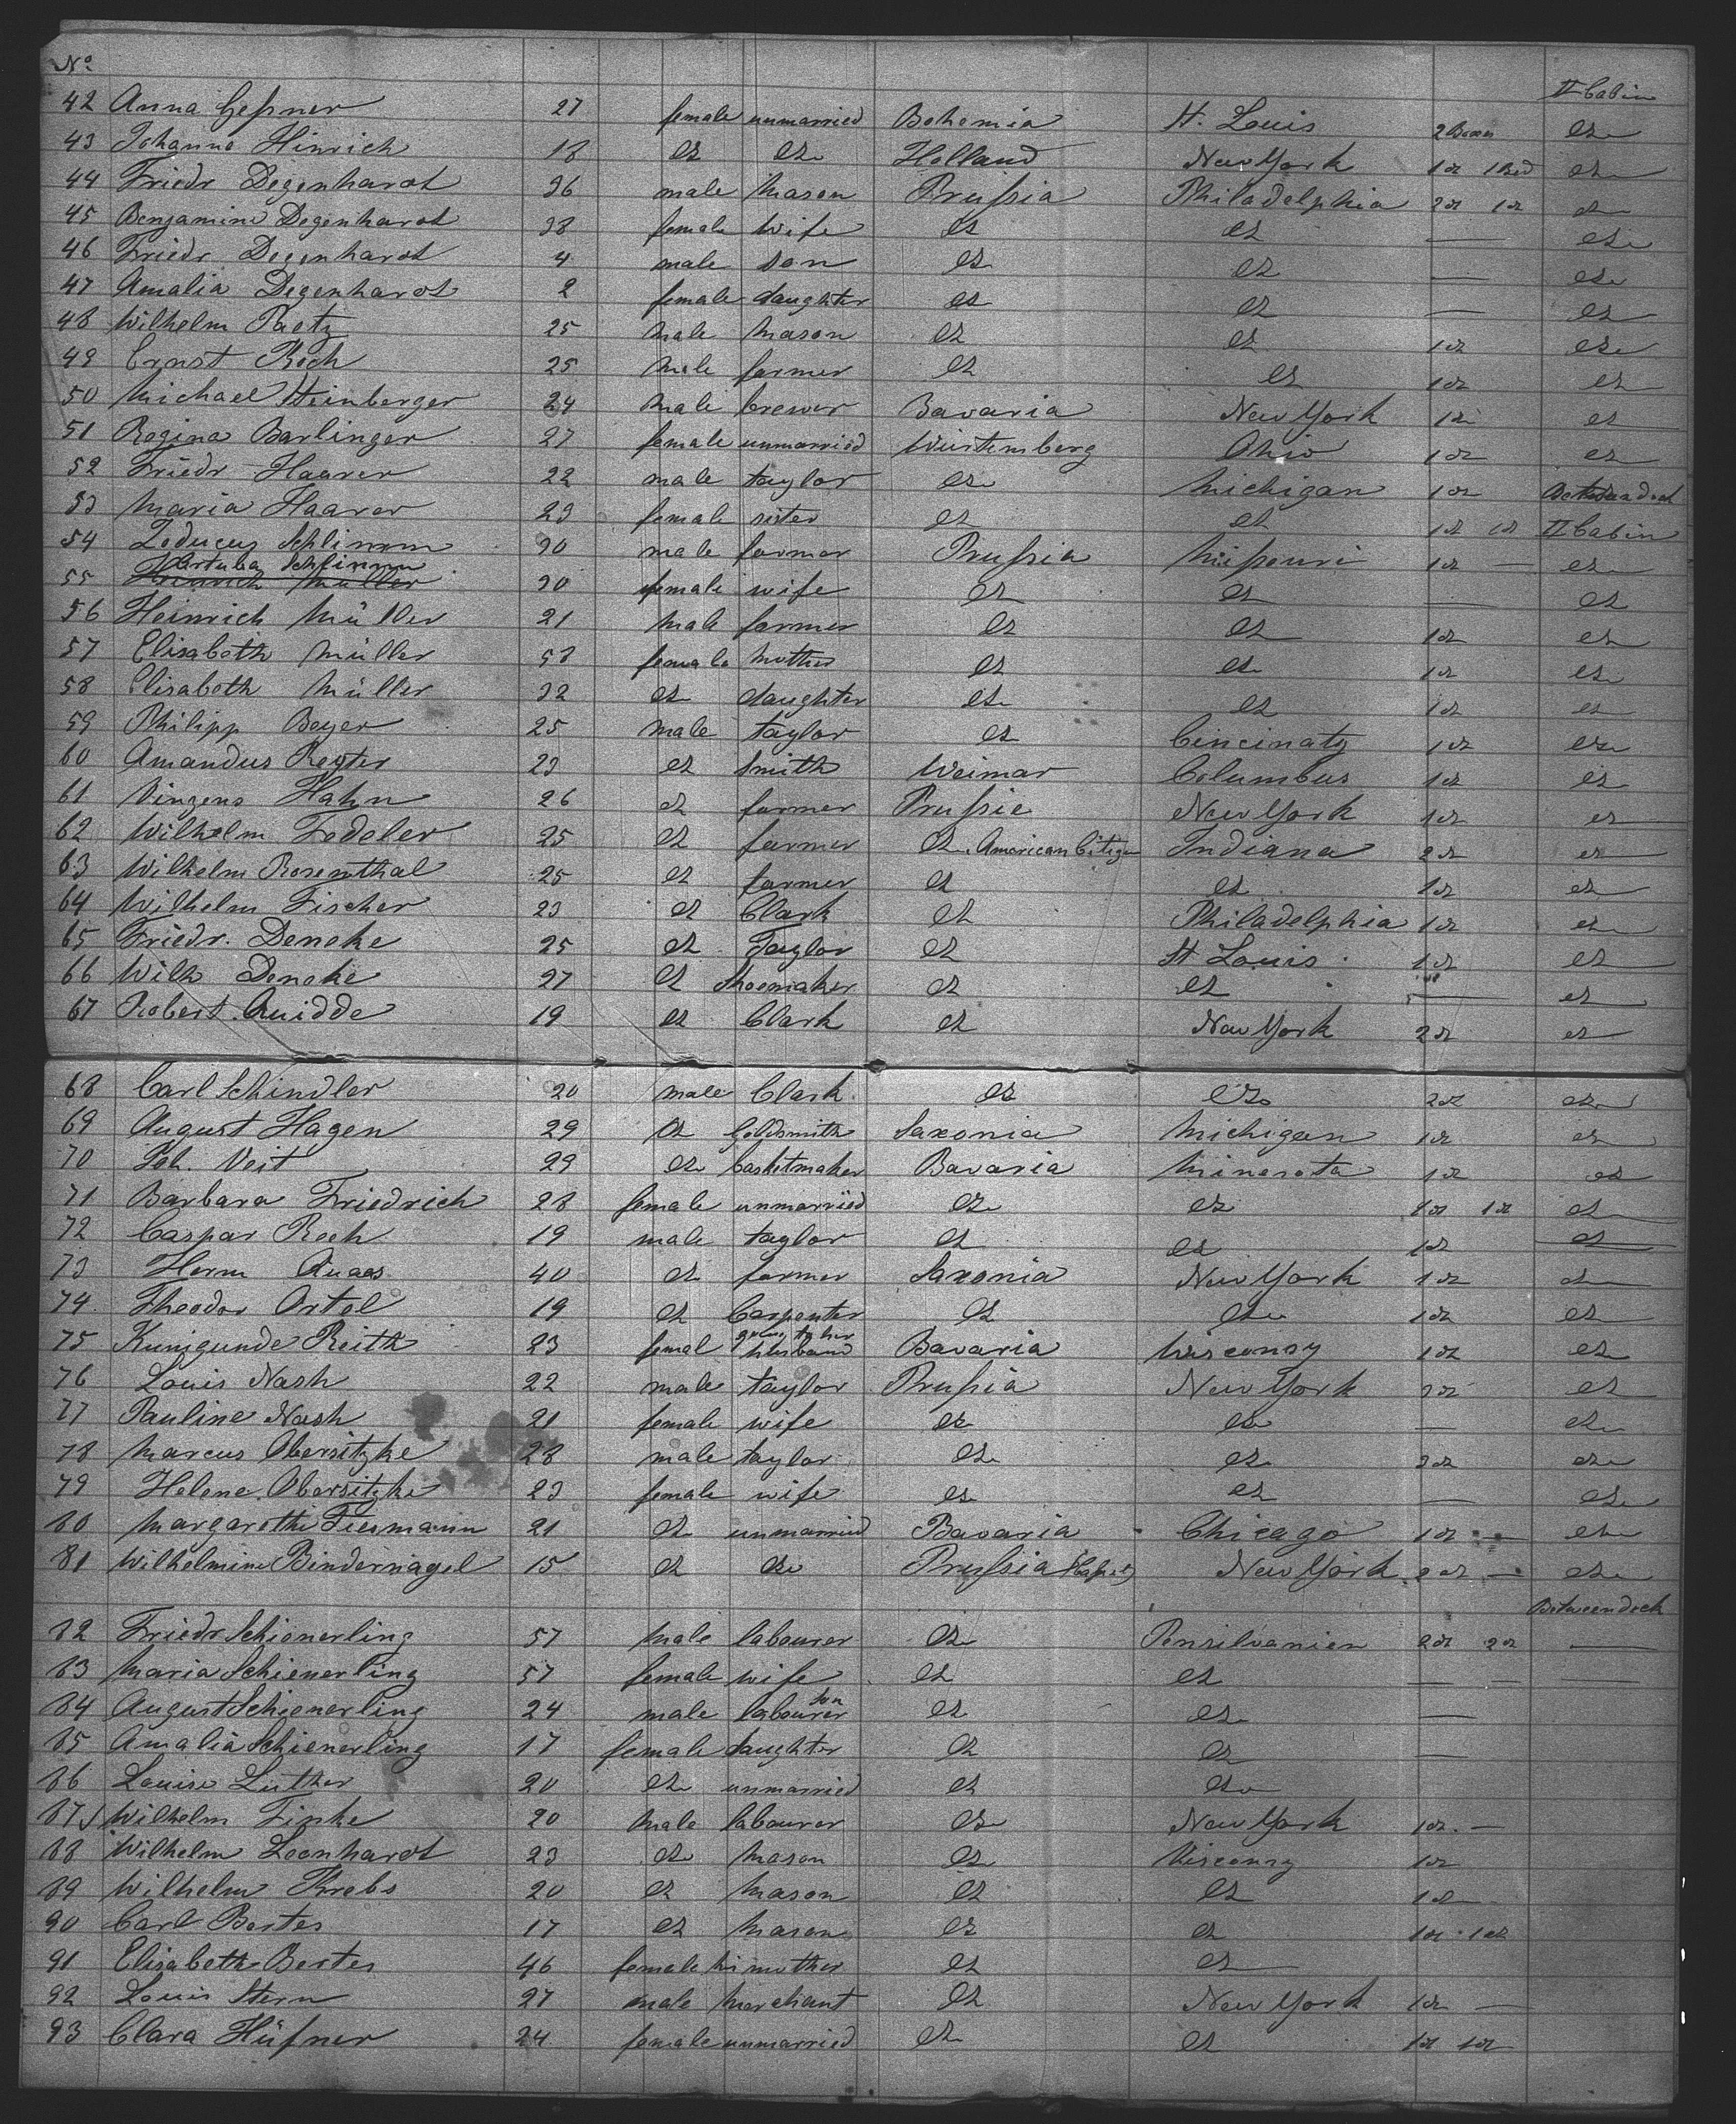 No
II Cabin
42 Anna Geßner 27 female unmarried Bohemia St. Louis 2 Boxes do
43 Johanna Hinrich 18 do do Holland New York 1 do 1 Bed do
44 Friedr Degenhardt 36 male mason Prußia Philadelphia 2 do 1 do do
45 Benjamine Degenhardt 38 female wife do do — do
46 Friedr. Degenhardt 4 male son do do — do
47 Amalia Degenhardt 2 female daughter do do — do
48 Wilhelm Paetz 25 male mason do do 1 do do
49 Ernst Koch 25 male farmer do do 1 do do
50 Michael Steinberger 24 male brewer Bavaria New York 1 do do
51 Regina Barlinger 27 female unmarried Würtemberg Ohio 1 do do
52 Friedr Haarer 22 male taylor do Michigan 1 do Betweendeck
53 Maria Haarer 23 female sister do do 1 do 1 do II Cabin
54 Schlimm 30 male farmer Prußia Mißouri 1 do — do
Schlimm
55 Heinrich Müller 30 female wife do do — do
56 Heinrich Müller 21 male farmer do do 1 do do
57 Elisabeth Müller 58 female mother do do 1 do do
58 Elisabeth Müller 32 do daughter do do 1 do do
59 Philipp Beyer 25 male taylor do Cincinaty 1 do do
60 Amandus Reyter 23 do Smith Weimar Columbus 1 do do
61 Vinzens Hahn 26 do farmer Prußie New York 1 do do
62 Wilhelm Fedeler 25 do farmer do. American Citizen Indiana 2 do do
63 Wilhelm Rosenthal 25 do farmer do do 1 do do
64 Wilhelm Fischer 23 do Clark do Philadelphia 1 do do
65 Friedr. Deneke 25 do Taylor do St Louis 1 do do
66 Wilh Deneke 27 do Shoemaker do do — do
67 Robert Quidde 19 do Clark do New York 2 do do
68 Carl Schindler 20 male Clark do do 2 do do
69 August Hagen 29 do Goldsmith Saxonia Michigan 1 do do
70 Joh. Veit 29 do basketmaker Bavaria Minesota 1 do do
71 Barbara Friedrich 28 female unmarried do do 1 do 1 do do
72 Caspar Roch 19 male taylor do do 1 do do
73 Herm Quaas 40 do farmer Saxonia New York 1 do do
74 Theodor Ortel 19 do Carpenter do do 1 do do
75 Kunigunde Reith 23 femal going to her husband Bavaria Wisconsy 1 do do
76 Louis Nash 22 male taylor Prußia New York 2 do do
77 Pauline Nash 21 female wife do do — do
78 Marcus Obersitzke 28 male taylor do do 2 do do
79 Helene Obersitzke 23 female wife do do — do
80 Margarethe Tiesmann 21 do unmarried Bavaria Chicago 1 do — do
81 Wilhelmine Bindernagel 15 do do Prußia New York 2 do — do
Betweendeck
82 Friedr Schienerling 57 male labourer do Pensilvanien 2 do 2 do —
83 Maria Schienerling 57 female wife do do — — —
84 August Schienerling 24 male labourer son do do —
85 Amalia Schienerling 17 female daughter do do —
86 Louise Luther 20 do unmarried do do
87 Wilhelm Finke 20 male labourer do New York 1 do. —
88 Wilhelm Leonhardt 23 do mason do Visconsy 1 do
89 Wilhelm Krebs 20 do mason do do 1 do
90 Carl Bertes 17 do mason do do 1 do 1 do
91 Elisabeth Bertes 46 female his mother do do
92 Louis Stern 27 male merchant do New York 1 do —
93 Clara Hüfner 24 female unmarried do do 1 do 1 do